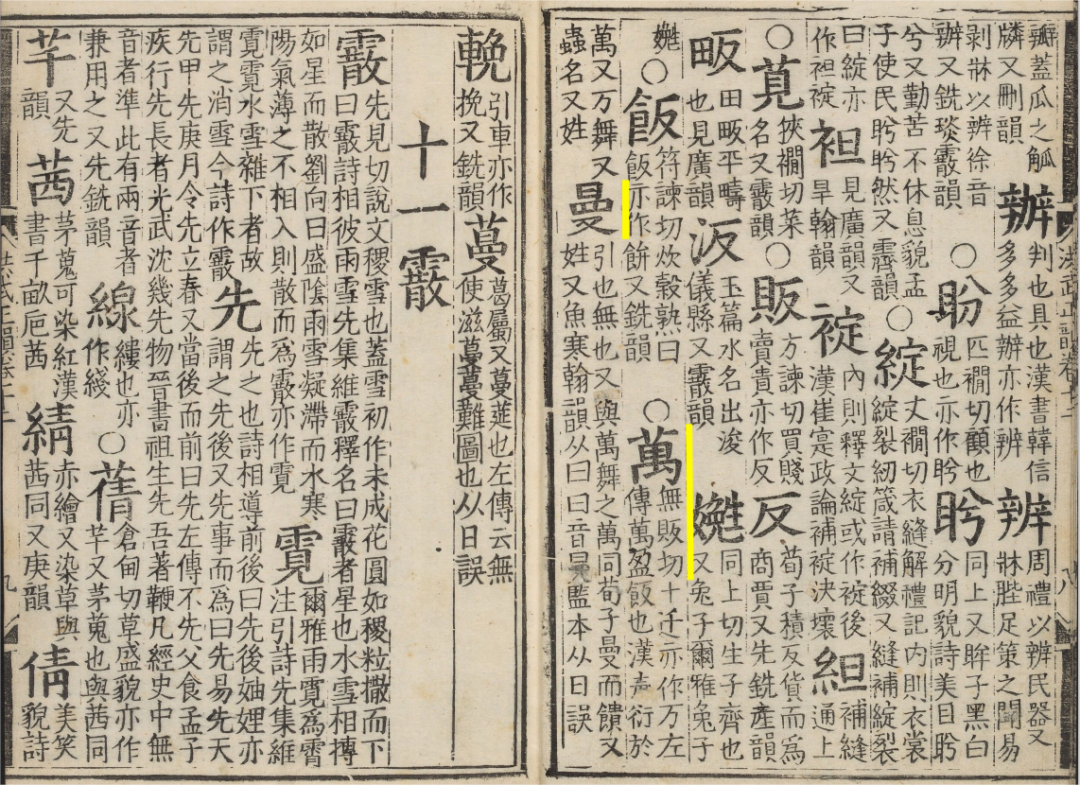 瓣蓋瓜之觚
麟又刪韻
辦
判也具也漢書韓信
多多益辦亦作辨
辨
周禮以辨民器又
牀陛足策之聞易
剥牀以辨徐音
辦又銑琰霰韻
○盼
匹襇切顧也
視也亦作盻
盻
同上又眸子黑白
分明貌詩美目盻
兮又勤苦不休息貌孟
子使民盻盻然又霽韻
○綻
丈襇切衣縫解禮記内則衣裳
綻裂紉箴請補綴又縫補綻裂
曰綻亦
作袒䘺
袒
見廣韻又
旱翰韻
䘺
内則釋文綻或作䘺後
漢崔寔政論補䘺決壞
組
補縫
通上
○莧
狹襇切菜
名又霰韻
○販
方諫切買賤
賣貴亦作反
反
荀子積反貨而爲
商賈又先銑產韻
畈
田畈平疇
也見廣韻
汳
玉篇水名出浚
儀縣又霰韻
嬎
同上切生子齊也
又兔子爾雅兔子
嬎
○飯
符諫切炊穀熟曰
飯亦作餅又銑韻
○萬
無販切十千亦作万左
傳萬盈飯也漢声衍於
萬又万舞又
蟲名又姓
曼
引也無也又與萬舞之萬同荀子曼而饋又
姓又魚寒翰韻从曰曰音冕監本从日誤
輓
引車亦作
挽又銑韻
蔓
葛屬又蔓莚也左傳云無
使滋蔓蔓難圖也从日誤
十一霰
霰
先見切說文稷雪也蓋雪初作未成花圓如稷粒撒而下
曰霰詩相彼雨雪先集維霰釋名曰霰者星也水雪相摶
如星而散劉向曰盛陰雨雪凝滯而水寒
陽氣薄之不相入則散而爲霰亦作霓
霓
爾雅雨霓爲霄
注引詩先集維
霓霓水雪雜下者故
謂之消雪今詩作霰
先
先之也詩相導前後曰先後妯娌亦
謂之先後又先事而爲曰先易先天
先甲先庚月令先立春又當後而前曰先左傳不先父食孟子
疾行先長者光武沈幾先物晉書祖生先吾著鞭凡經史中無
音者準此有兩音者
兼用之又先銑韻
線
縷也亦
作綫
○蒨
倉甸切草盛貌亦作
芊又茅蒐也與茜同
芊
又先
韻
茜
茅蒐可染紅漢
書千畝巵茜
綪
亦繒又染草與
茜同又庚韻
倩
美笑
貌詩